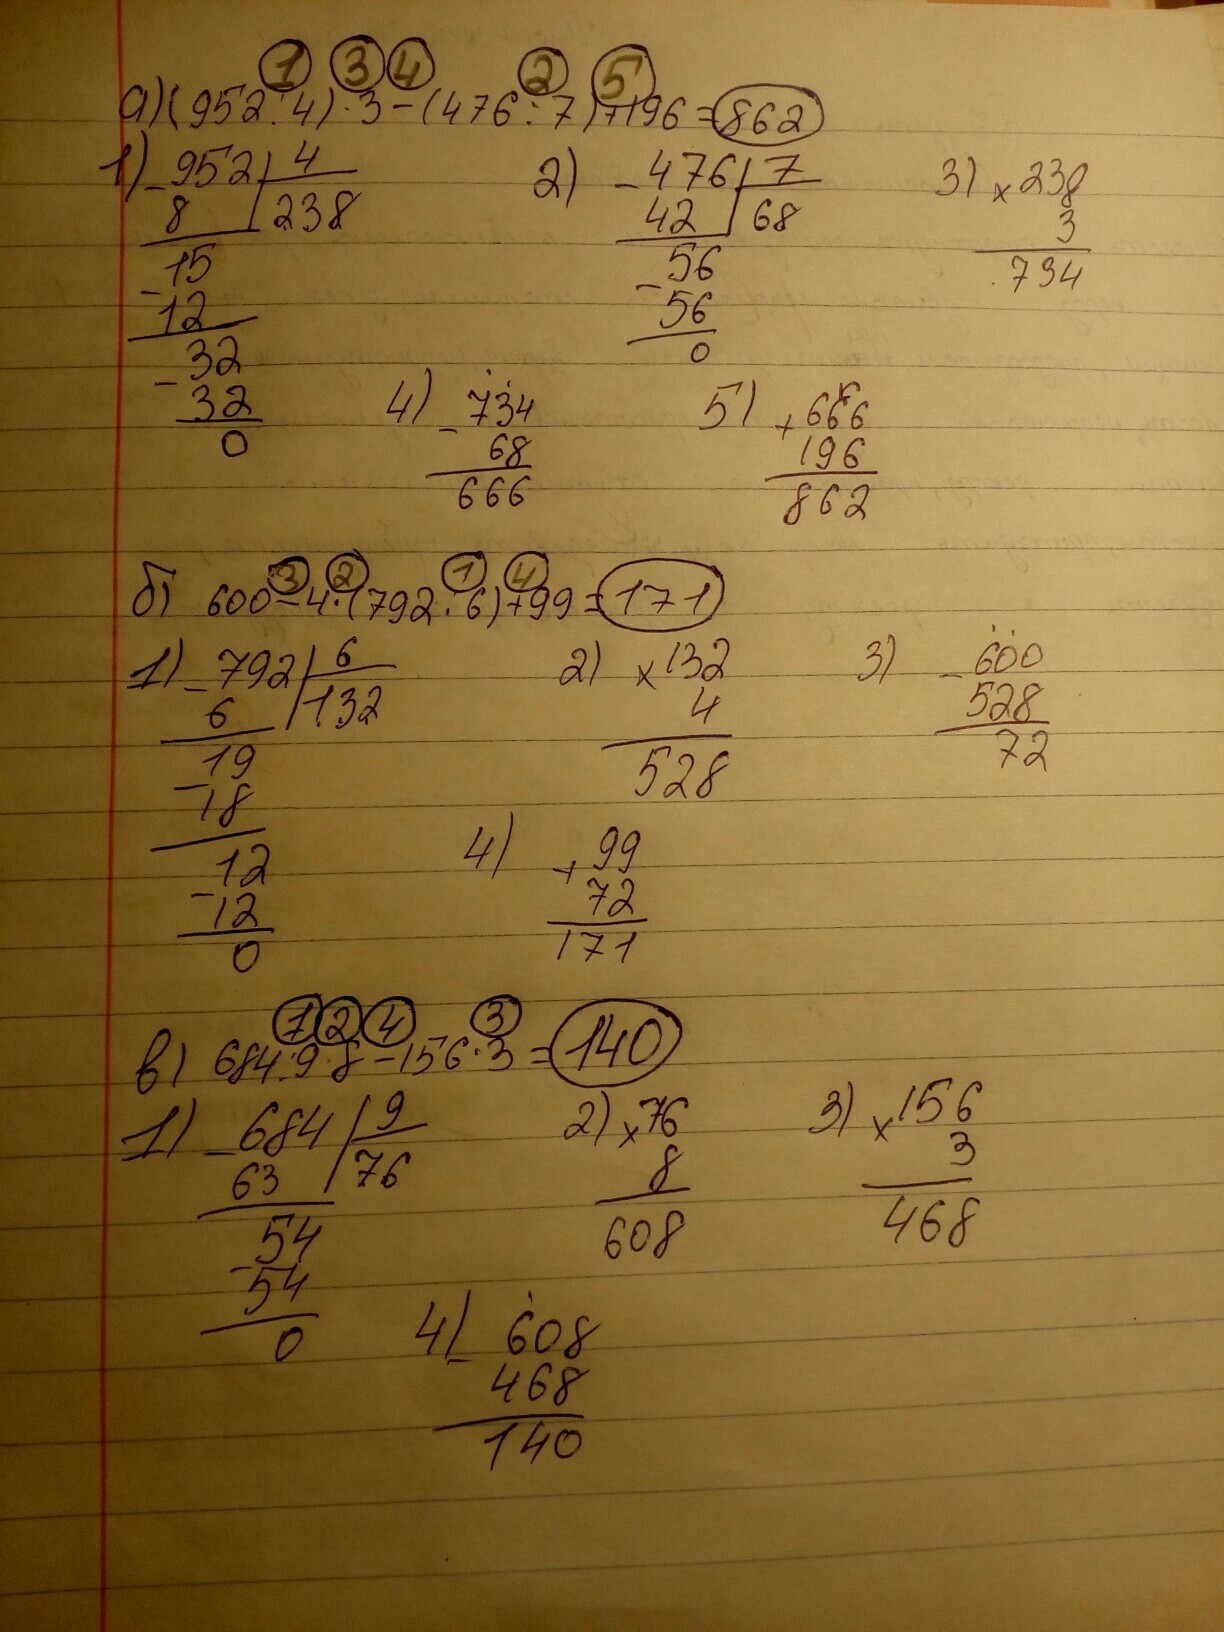 1 3 4 2 5
а) (952:4)·3-(476:7)+196=862
1) -952 | 4 2) -476 | 7 3) ×238
8 | 238 42 | 68 3
-15 -56 734
-12 56
-32 0
32 4) -734 5) +666
0 68 196
666 862
3 2 1 4
б) 600-4·(792:6)+99=171
1) -792 | 6 2) ×132 3) -600
6 | 132 4 528
-19 528 72
-18
-12 4) +99
12 72
0 171
1 2 4 3
в) 684:9·8-156·3=140
1) -684 | 9 2) ×76 3) ×156
63 | 76 8 3
-54 608 468
54
0 4) -608
468
140